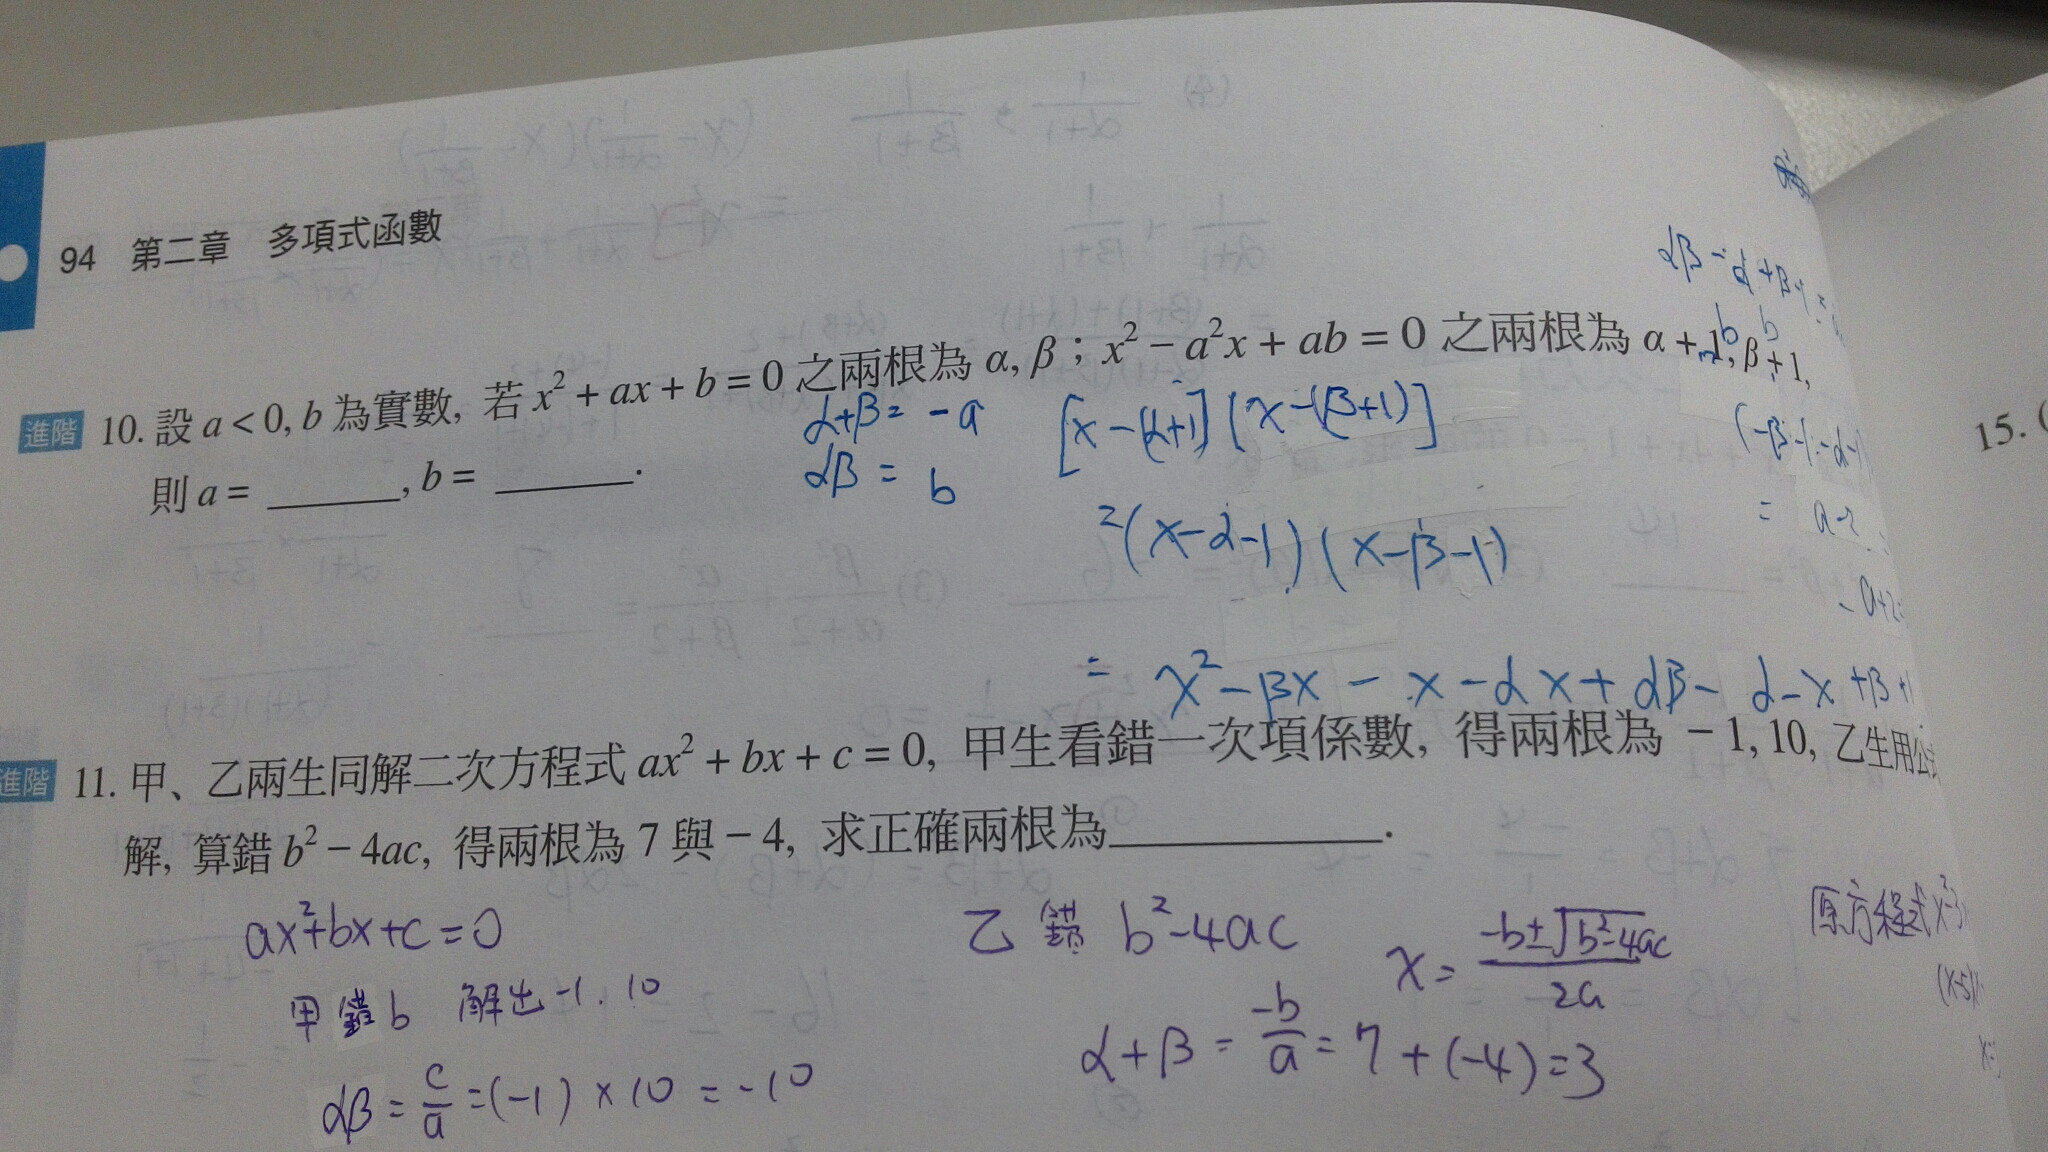 94 第二章 多項式函數
進階 10. 設 a < 0, b 為實數, 若 x² + ax + b = 0 之兩根為 α, β ; x² − a²x + ab = 0 之兩根為 α + 1, β + 1,
則 a = ______, b = ______.
α+β = -a
αβ = b
[x-(α+1)][x-(β+1)]
=(x-α-1)(x-β-1)
= x²-βx-x-αx+αβ-α-x+β+1
進階 11. 甲、乙兩生同解二次方程式 ax² + bx + c = 0, 甲生看錯一次項係數, 得兩根為 −1, 10, 乙生用公式
解, 算錯 b² − 4ac, 得兩根為 7 與 −4, 求正確兩根為____________.
ax²+bx+c=0
甲錯b 解出-1, 10
αβ = c/a =(-1) × 10 = -10
乙錯 b²-4ac
x = (-b±√b²-4ac)/2a
α+β = -b/a = 7+(-4)=3
原方程式 x²-3
(x-5)(
15. (